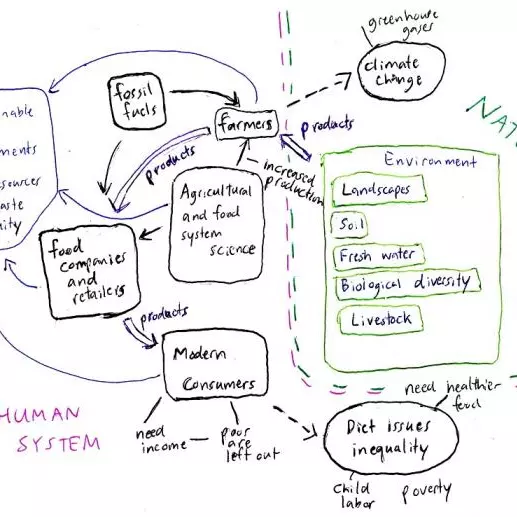 greenhouse
gases
climate
change
NAT
fossil
fuels
farmers
products
products
increased
production
Environment
Landscapes
Soil
Fresh water
Biological diversity
Livestock
Agricultural
and food
system
science
nable
ments
sources
aste
ity
food
companies
and
retailers
products
Modern
Consumers
need
income
poor
are
left out
HUMAN
SYSTEM
need healthier
food
Diet issues
inequality
child
labor
poverty